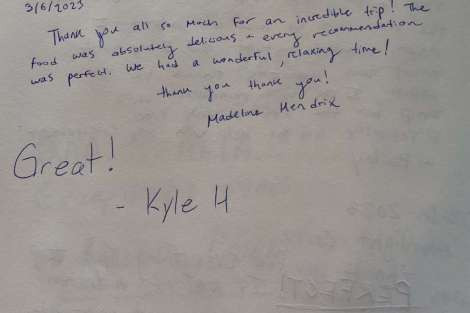 3/6/2023
Thank you all so much for an incredible trip! The
food was absolutely delicous & every recommendation
was perfect. We had a wonderful, relaxing time!
thank you thank you!
Madeline Hendrix
Great!
- Kyle H